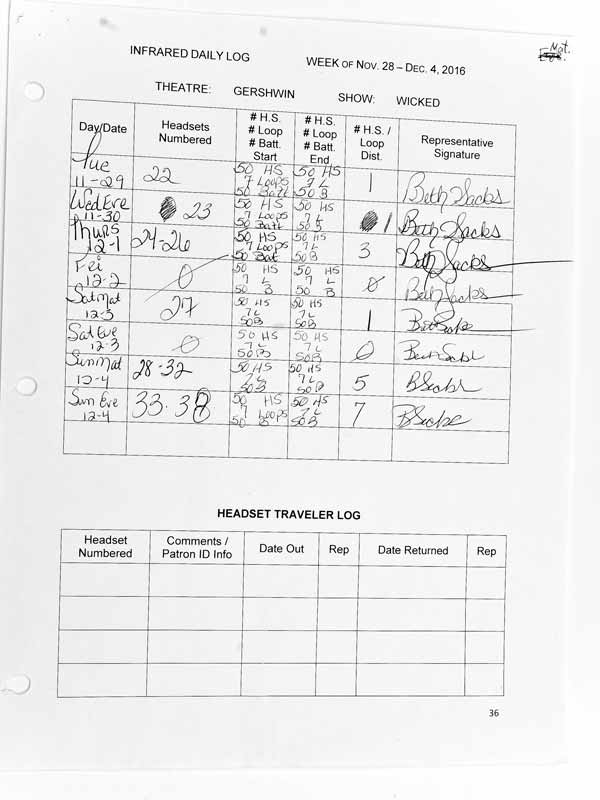 Mat.
INFRARED DAILY LOG WEEK OF NOV. 28 – DEC. 4, 2016
THEATRE: GERSHWIN SHOW: WICKED
Day/Date
Headsets
Numbered
# H.S.
# Loop
# Batt.
Start
# H.S.
# Loop
# Batt.
End
# H.S. /
Loop
Dist.
Representative
Signature
Tue
11-29
22
50 HS
7 Loops
50 Batt
50 HS
7 L
50 B
1
Beth Sacks
Wed Eve
11-30
23
50 HS
7 Loops
50 Batt
50 HS
7 L
50 B
1
Beth Sacks
Thurs
12-1
24-26
50 HS
7 Loops
50 Bat
50 HS
7 L
50 B
3
Beth Sacks
Fri
12-2
0
50 HS
7 L
50 B
50 HS
7 L
50 B
0
Beth Sacks
Sat Mat
12-3
27
50 HS
7L
50B
50 HS
7L
50B
1
Sat Eve
12-3
0
50 HS
7L
50B
50 HS
7L
50B
0
Sun Mat
12-4
28-32
50 HS
7L
50B
50 HS
7L
50B
5
Sun Eve
12-4
33-38
50 HS
7 Loops
50 B
50 HS
7 L
50 B
7
HEADSET TRAVELER LOG
Headset
Numbered
Comments /
Patron ID Info
Date Out
Rep
Date Returned
Rep
36